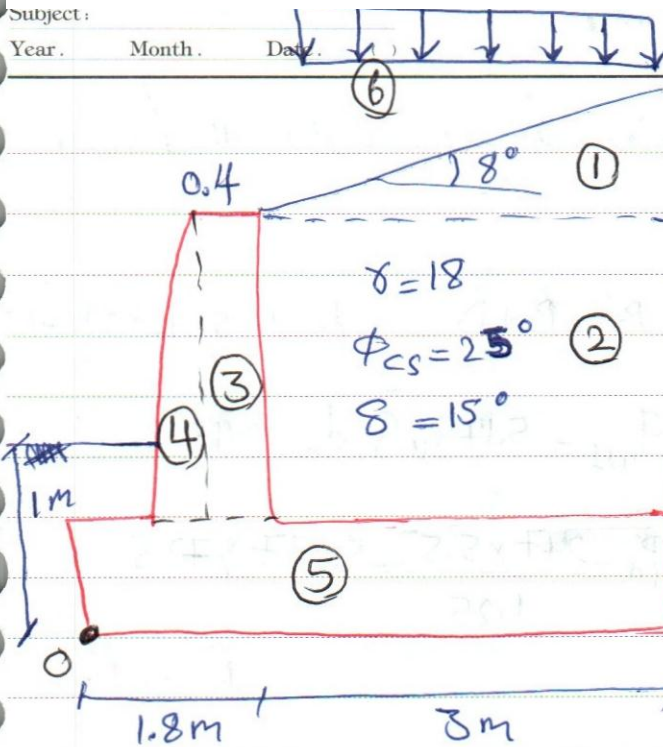 Subject:
Year. Month. Date. ( )
6
8°
1
0.4
γ=18
ϕcs=25°
2
3
δ=15°
4
1m
5
O
1.8m
3m